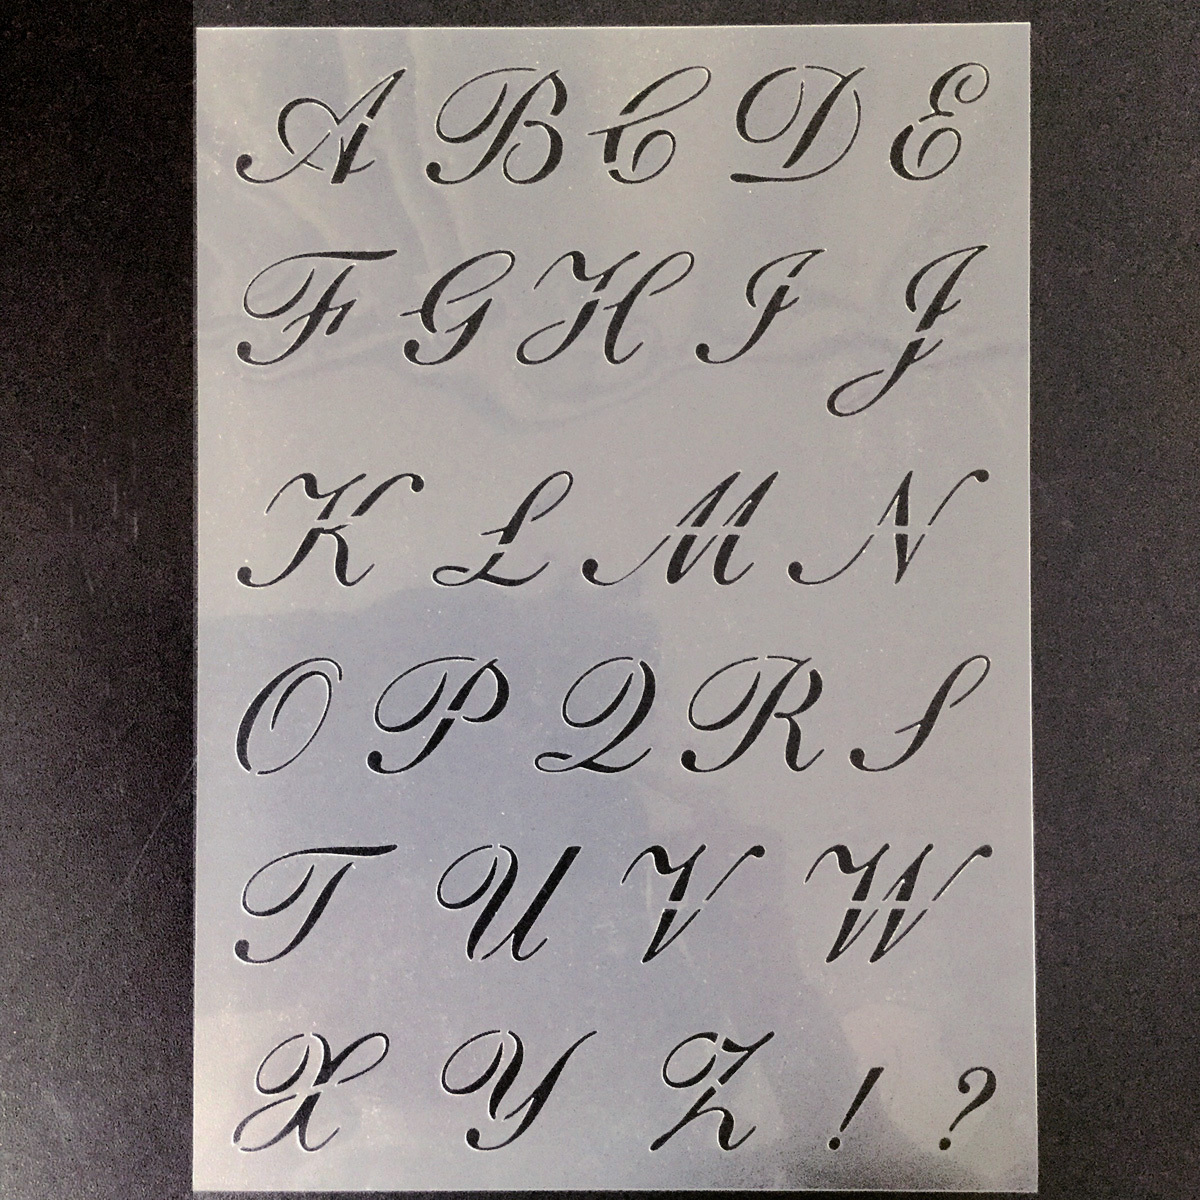 A B C D E
F G H I J
K L M N
O P Q R S
T U V W
X Y Z ! ?